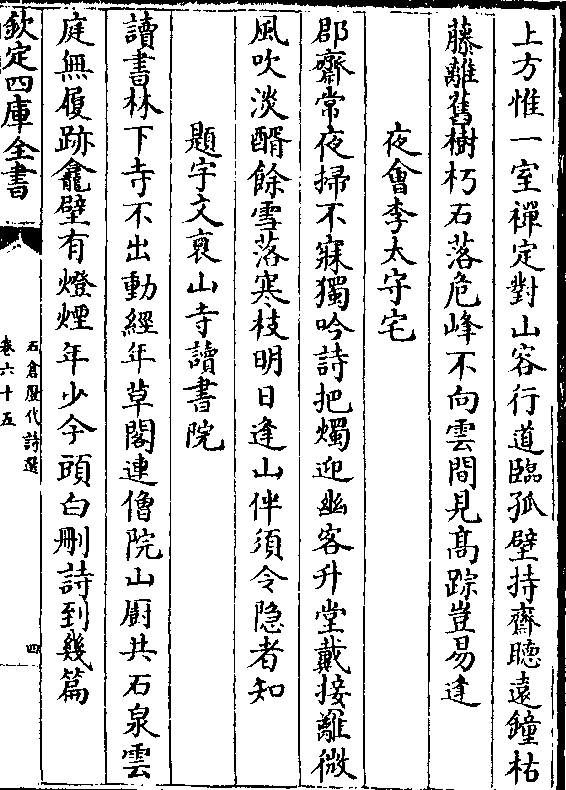 上方惟一室禪定對山容行道臨孤壁持齋聽遠鐘枯
藤離舊樹朽石落危峰不向雲間見高踪豈易逢
夜會李太守宅
郡齋常夜掃不寐獨吟詩把燭迎幽客升堂戴接離微
風吹淡醑餘雪落寒枝明日逢山伴須令隐者知
題宇文裒山寺讀書院
讀書林下寺不出動經年草閣連僧院山厨共石泉雲
庭無履跡龕壁有燈煙年少今頭白刪詩到幾篇
欽定四庫全書
石倉歷代詩選
卷六十五
四